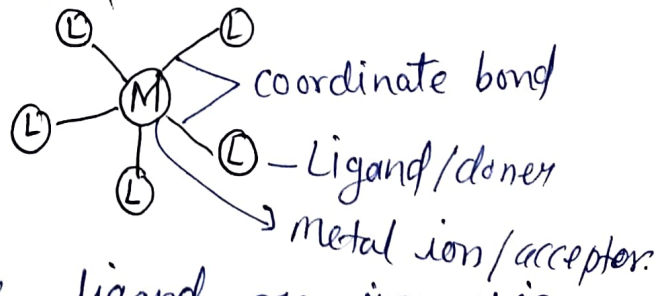 L L
M
coordinate bond
L
L - Ligand/doner
L
metal ion/acceptor.
ligand